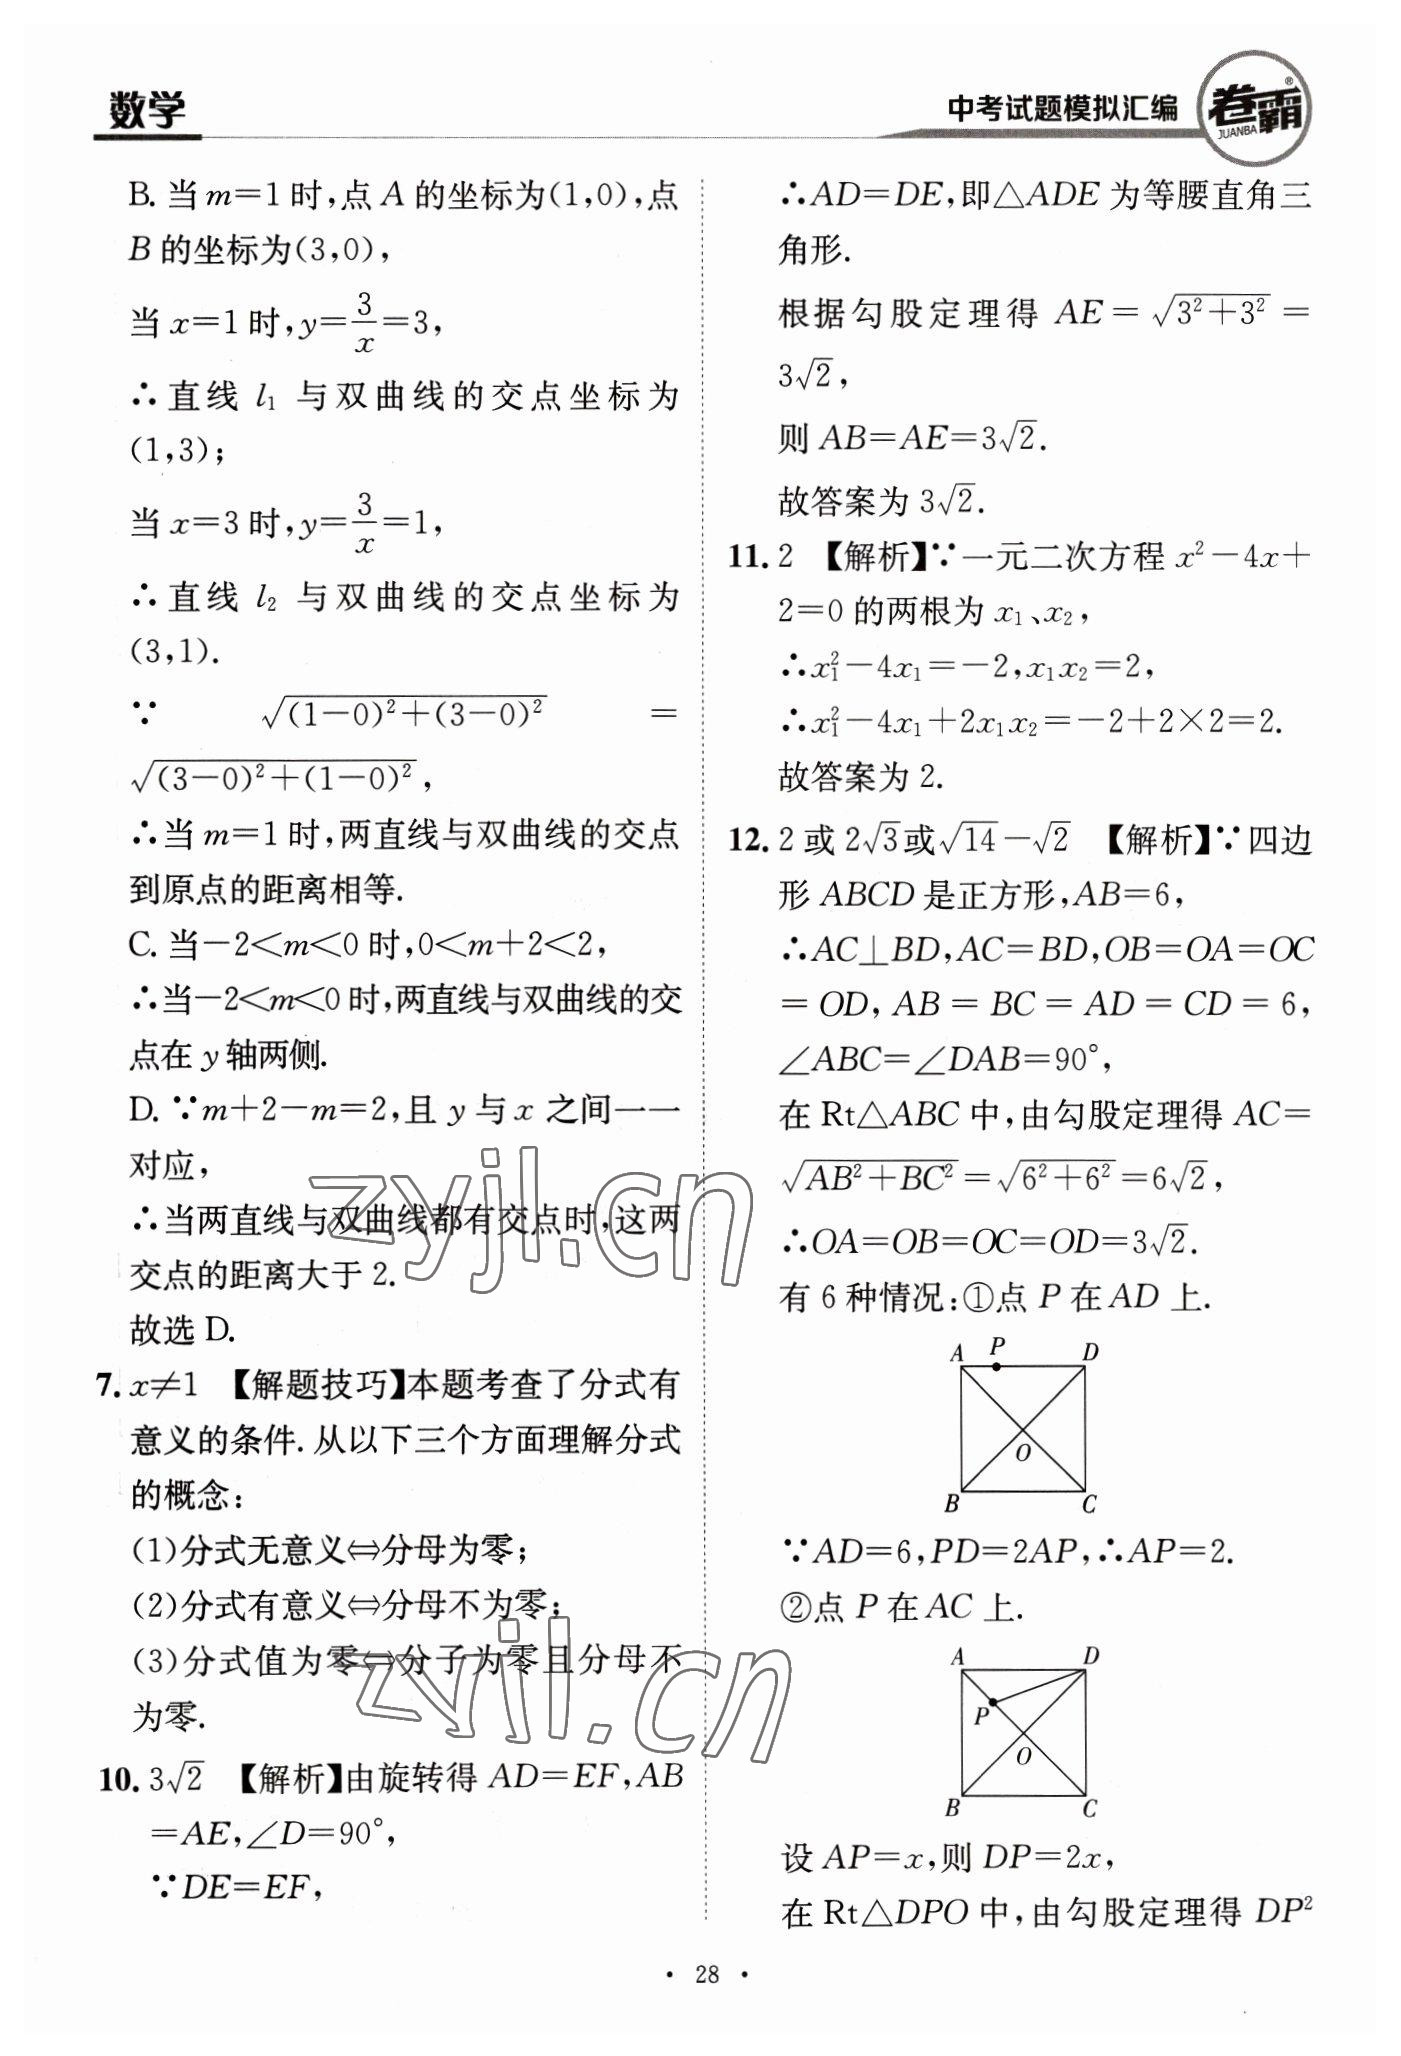 数学
中考试题模拟汇编
卷霸®
JUANBA
B. 当 m=1 时,点 A 的坐标为(1,0),点
B 的坐标为(3,0),
当 x=1 时,y=3/x=3,
∴直线 l₁ 与双曲线的交点坐标为
(1,3);
当 x=3 时,y=3/x=1,
∴直线 l₂ 与双曲线的交点坐标为
(3,1).
∵ √((1-0)²+(3-0)²) =
√((3-0)²+(1-0)²),
∴当 m=1 时,两直线与双曲线的交点
到原点的距离相等.
C. 当-2<m<0 时,0<m+2<2,
∴当-2<m<0 时,两直线与双曲线的交
点在 y 轴两侧.
D. ∵m+2-m=2,且 y 与 x 之间一一
对应,
∴当两直线与双曲线都有交点时,这两
交点的距离大于 2.
故选 D.
7. x≠1 【解题技巧】本题考查了分式有
意义的条件. 从以下三个方面理解分式
的概念:
(1)分式无意义⇔分母为零;
(2)分式有意义⇔分母不为零;
(3)分式值为零⇔分子为零且分母不
为零.
10. 3√2 【解析】由旋转得 AD=EF,AB
=AE,∠D=90°,
∵DE=EF,
∴AD=DE,即△ADE 为等腰直角三
角形.
根据勾股定理得 AE=√(3²+3²)=
3√2,
则 AB=AE=3√2.
故答案为 3√2.
11. 2 【解析】∵一元二次方程 x²-4x+
2=0 的两根为 x₁、x₂,
∴x₁²-4x₁=-2,x₁x₂=2,
∴x₁²-4x₁+2x₁x₂=-2+2×2=2.
故答案为 2.
12. 2 或 2√3或√14-√2 【解析】∵四边
形 ABCD 是正方形,AB=6,
∴AC⊥BD,AC=BD,OB=OA=OC
=OD, AB=BC=AD=CD=6,
∠ABC=∠DAB=90°,
在 Rt△ABC 中,由勾股定理得 AC=
√(AB²+BC²)=√(6²+6²)=6√2,
∴OA=OB=OC=OD=3√2.
有 6 种情况:①点 P 在 AD 上.
A P D
O
B C
∵AD=6,PD=2AP,∴AP=2.
②点 P 在 AC 上.
A D
P
O
B C
设 AP=x,则 DP=2x,
在 Rt△DPO 中,由勾股定理得 DP²
zyjl.cn
zyjl.cn
· 28 ·